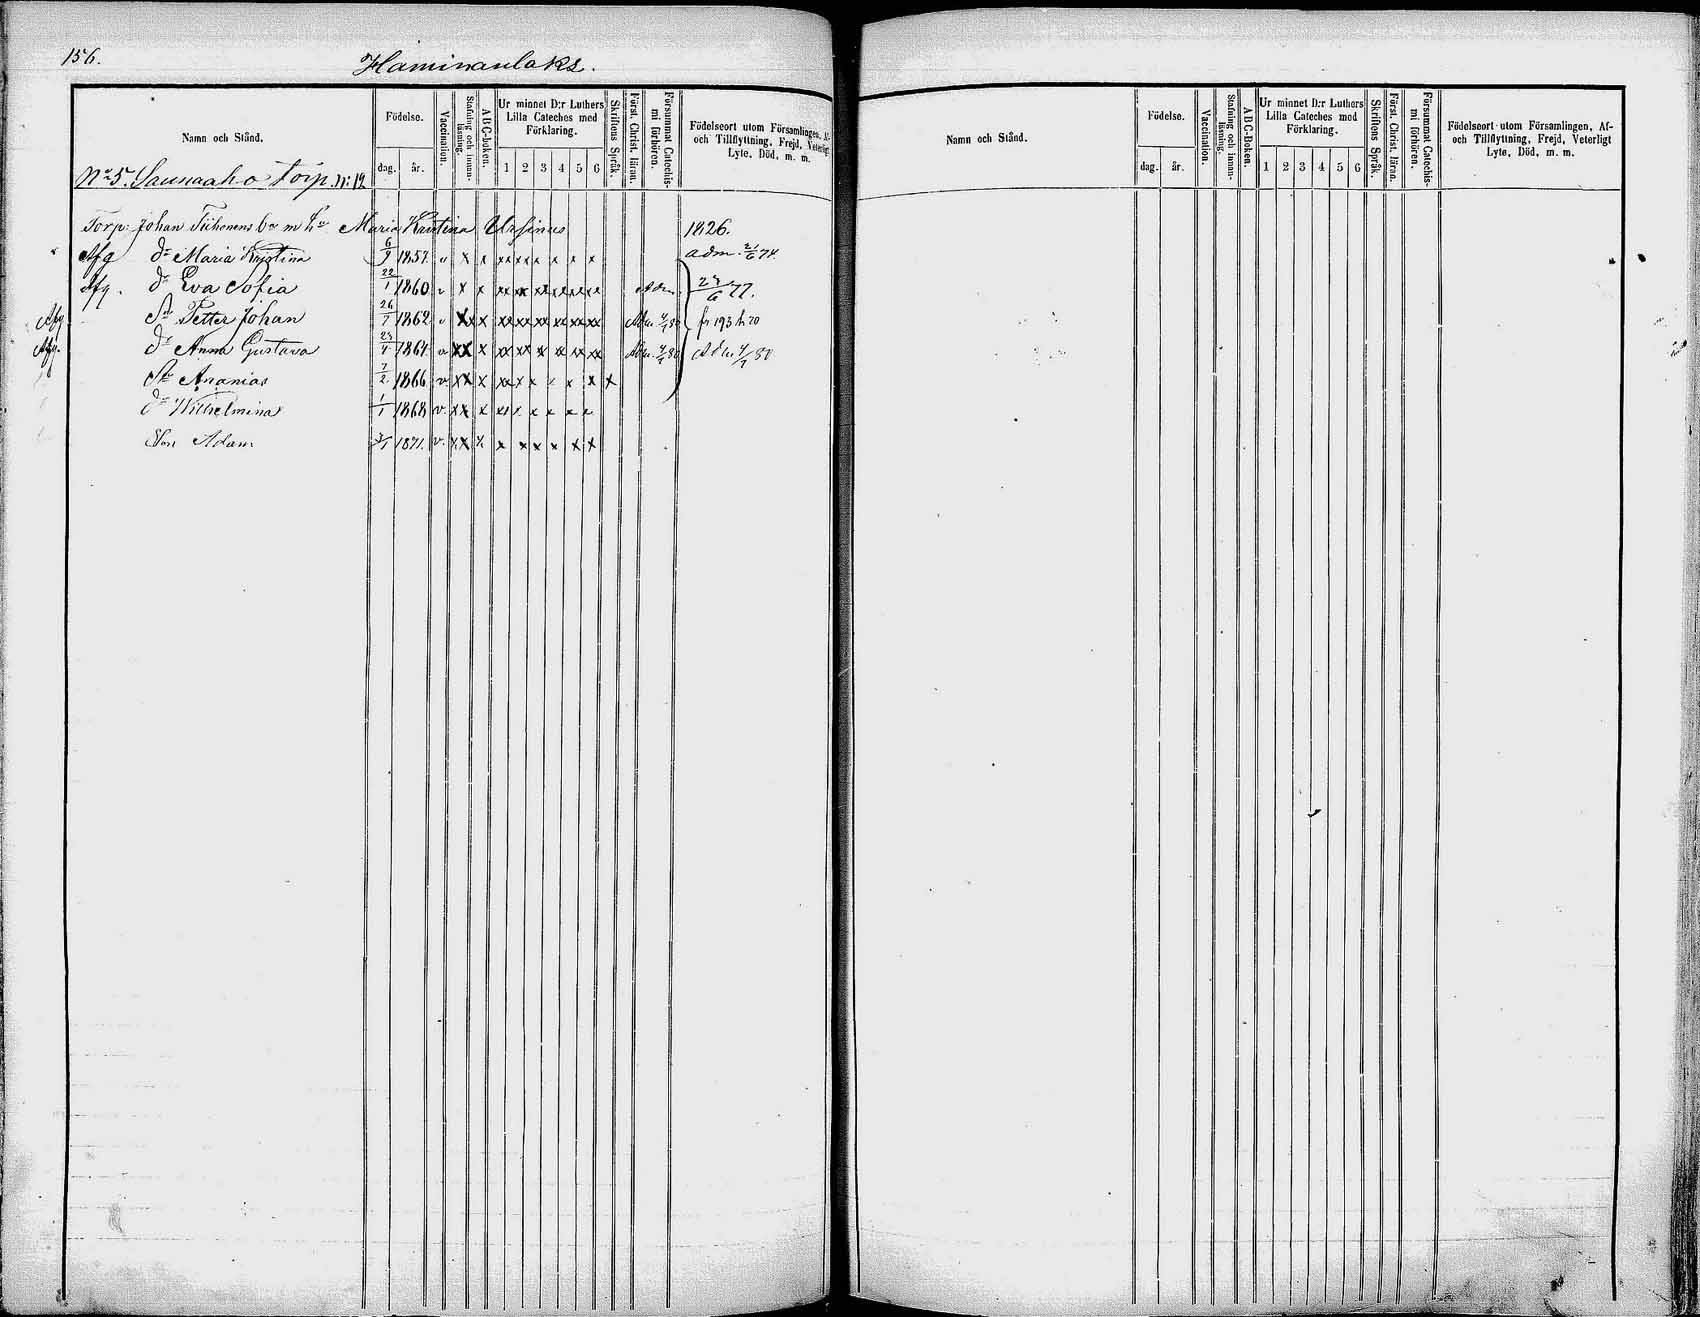 156.
Haminanlaks.
Namn och Stånd. Födelse. dag. år. Vaccination. Stafning och innanläsning. ABC-Boken. Ur minnet D:r Luthers Lilla Cateches med Förklaring. 1 2 3 4 5 6 Skriftens Språk. Först. Christ. läran. Försummat Catechismi förhören. Födelseort utom Församlingen, Af- och Tillflyttning, Frejd, Veterligt Lyte, Död, m. m.
No 5. Saunaaho Torp. N: 12
Torp: Johan Tiihonens b:r m h:u Maria Kristina Ursinus 1826.
Afg d:r Maria Kristina 6/9 1857 v x x xx xx x x x x adm. 21/6 74.
Afg. d:r Eva Sofia 22/1 1860 v x x xx xx xx xx xx xx Adm. 23/6 77.
Afg Sn Petter Johan 26/7 1862 v xx x xx xx xx xx xx xx Adm. 4/7 80 fr 193 h 20
Afg. d:r Anna Gustava 23/4 1864 v xx x xx xx xx xx xx xx Adm. 4/7 80 Adm 4/7 80
Sn Ananias 7/2 1866 v xx x xx x x x x x x
d:r Wilhelmina 1/1 1868 v. xx x xx x x x x x
Son Adam 3/1 1871. v. xx x x x x x x x
Namn och Stånd. Födelse. dag. år. Vaccination. Stafning och innanläsning. ABC-Boken. Ur minnet D:r Luthers Lilla Cateches med Förklaring. 1 2 3 4 5 6 Skriftens Språk. Först. Christ. läran. Försummat Catechismi förhören. Födelseort utom Församlingen, Af- och Tillflyttning, Frejd, Veterligt Lyte, Död, m. m.